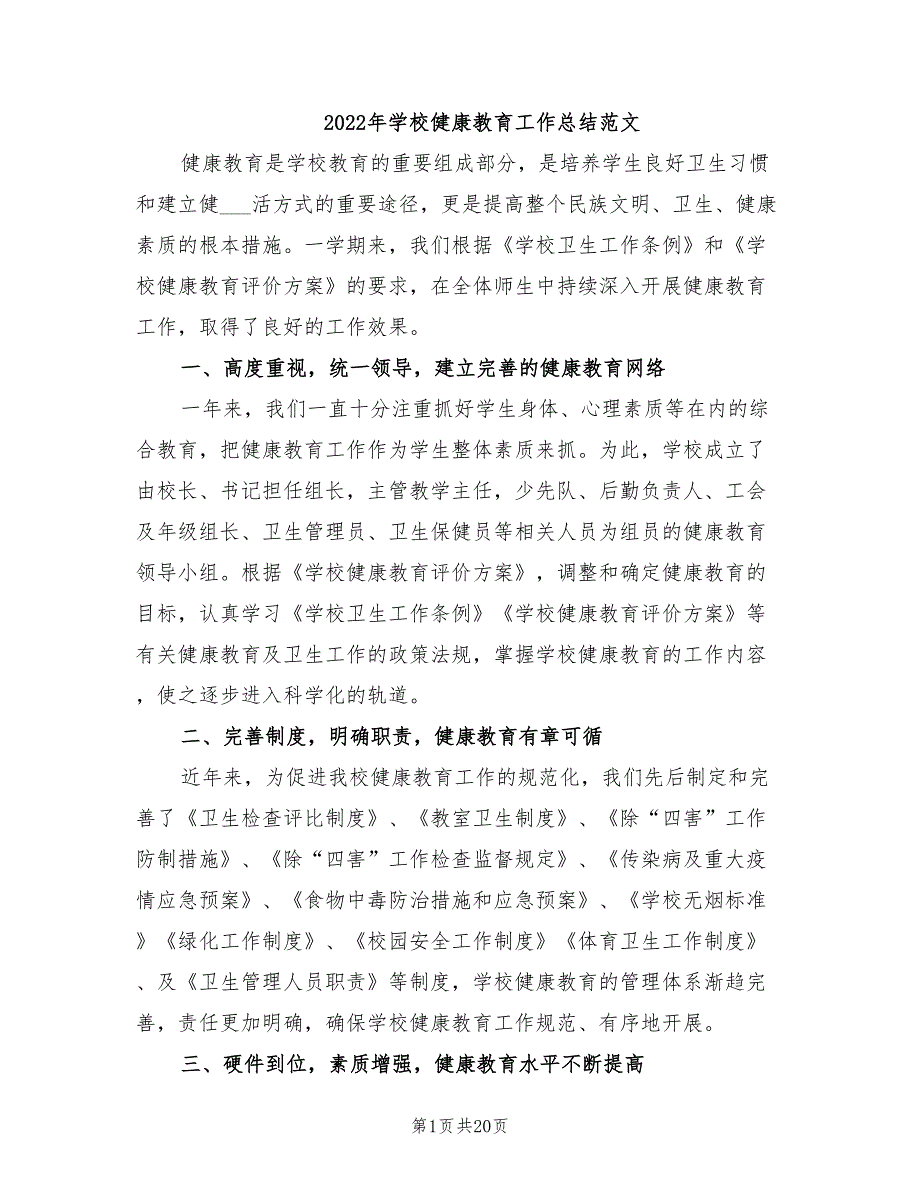 2022年学校健康教育工作总结范文
健康教育是学校教育的重要组成部分，是培养学生良好卫生习惯
和建立健___活方式的重要途径，更是提高整个民族文明、卫生、健康
素质的根本措施。一学期来，我们根据《学校卫生工作条例》和《学
校健康教育评价方案》的要求，在全体师生中持续深入开展健康教育
工作，取得了良好的工作效果。
一、高度重视，统一领导，建立完善的健康教育网络
一年来，我们一直十分注重抓好学生身体、心理素质等在内的综
合教育，把健康教育工作作为学生整体素质来抓。为此，学校成立了
由校长、书记担任组长，主管教学主任，少先队、后勤负责人、工会
及年级组长、卫生管理员、卫生保健员等相关人员为组员的健康教育
领导小组。根据《学校健康教育评价方案》，调整和确定健康教育的
目标，认真学习《学校卫生工作条例》《学校健康教育评价方案》等
有关健康教育及卫生工作的政策法规，掌握学校健康教育的工作内容
，使之逐步进入科学化的轨道。
二、完善制度，明确职责，健康教育有章可循
近年来，为促进我校健康教育工作的规范化，我们先后制定和完
善了《卫生检查评比制度》、《教室卫生制度》、《除“四害”工作
防制措施》、《除“四害”工作检查监督规定》、《传染病及重大疫
情应急预案》、《食物中毒防治措施和应急预案》、《学校无烟标准
》《绿化工作制度》、《校园安全工作制度》《体育卫生工作制度》
、及《卫生管理人员职责》等制度，学校健康教育的管理体系渐趋完
善，责任更加明确，确保学校健康教育工作规范、有序地开展。
三、硬件到位，素质增强，健康教育水平不断提高
第1页共20页